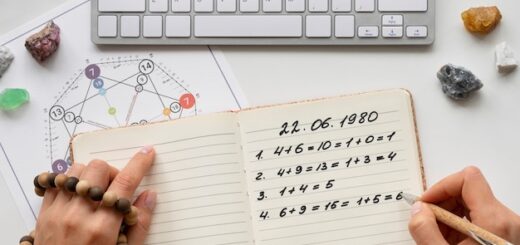 7
14
13
7
22.06.1980
1. 4+6=10=1+0=1
2. 4+9=13=1+3=4
3. 1+4=5
4. 6+9=15=1+5=6